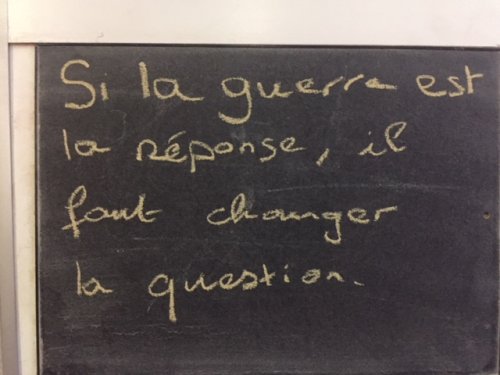 Si la guerre est
la réponse, il
faut changer
la question.